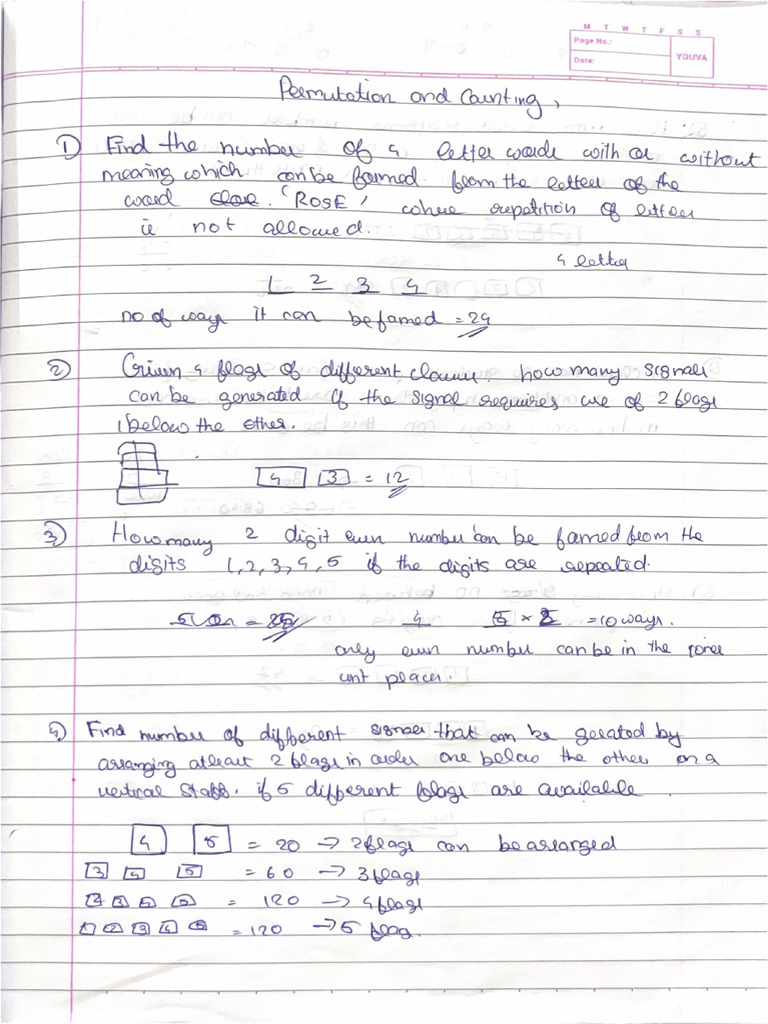 M T W T F S S
Page No.:
YOUVA
Date:
Permutation and Counting,
1) Find the number of 4 letter words with or without
meaning which can be formed from the letters of the
word 'ROSE', where repetition of letters
is not allowed.
4 letter
1 2 3 4
no of ways it can be formed = 24
2) Given 4 flags of different how many signals
can be generated if the signal requires use of 2 flags
1 below the other.
4 3 = 12
3) How many 2 digit even number can be formed from the
digits 1, 2, 3, 4, 5 if the digits are repeated.
4 5 × 2 = 10 ways.
only even number can be in the
unt places.
4) Find number of different signals that can be gerated by
arranging atleast 2 flags in order one below the other on a
vertical staff. if 5 different flags are available
4 5 = 20 → 2 flags can be arranged
3 4 5 = 60 → 3 flags
2 3 4 5 = 120 → 4 flags
1 2 3 4 5 = 120 → 5 flag.